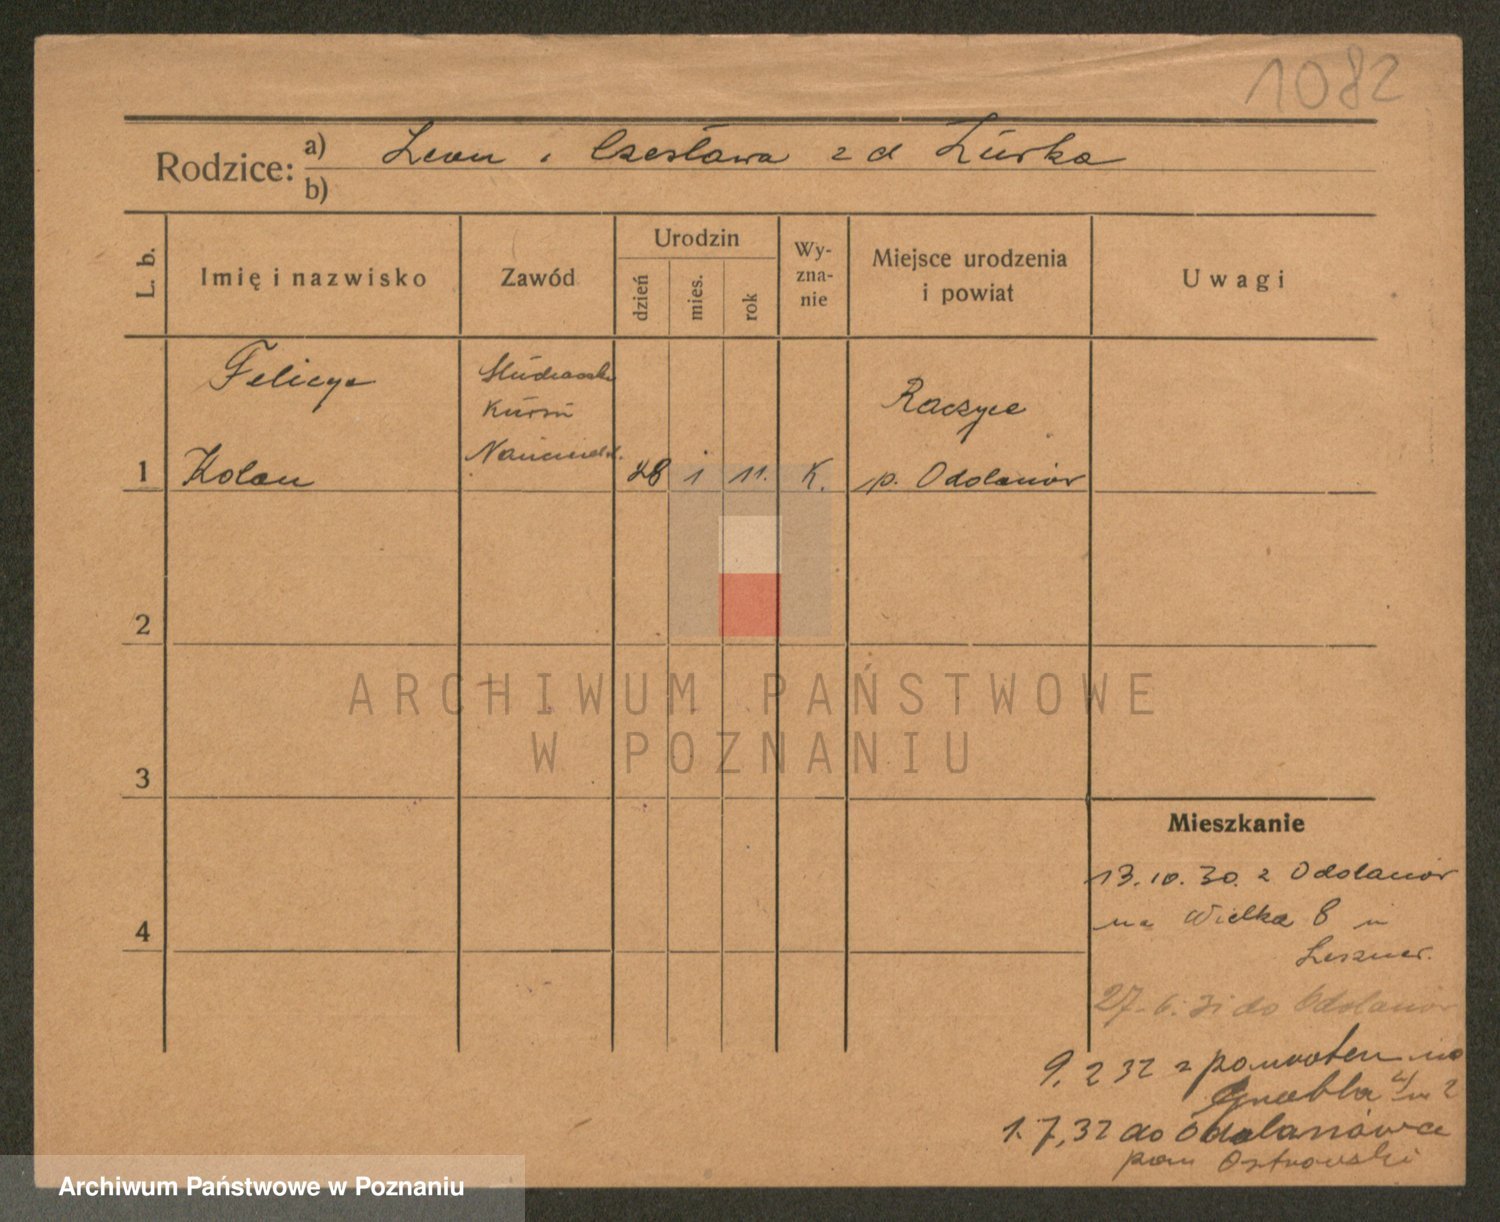 1082
Rodzice: a) Leon i Czesława z d Żurka
b)
L. b.
Imię i nazwisko
Zawód
Urodzin
dzień
mies.
rok
Wy-
zna-
nie
Miejsce urodzenia
i powiat
Uwagi
Felicya
Kursu
Raczyce
1 Kolan 28 1 11. K. p. Odolanów
2
3
4
ARCHIWUM PAŃSTWOWE
W POZNANIU
Mieszkanie
13.10.30. z Odolanów
na Wielka 8 w
Leszner.
27.6.31 do Odolanów
9.2 32 z powrotem na
1.7,32 do Odolanówca
pow Ostrowski
Archiwum Państwowe w Poznaniu